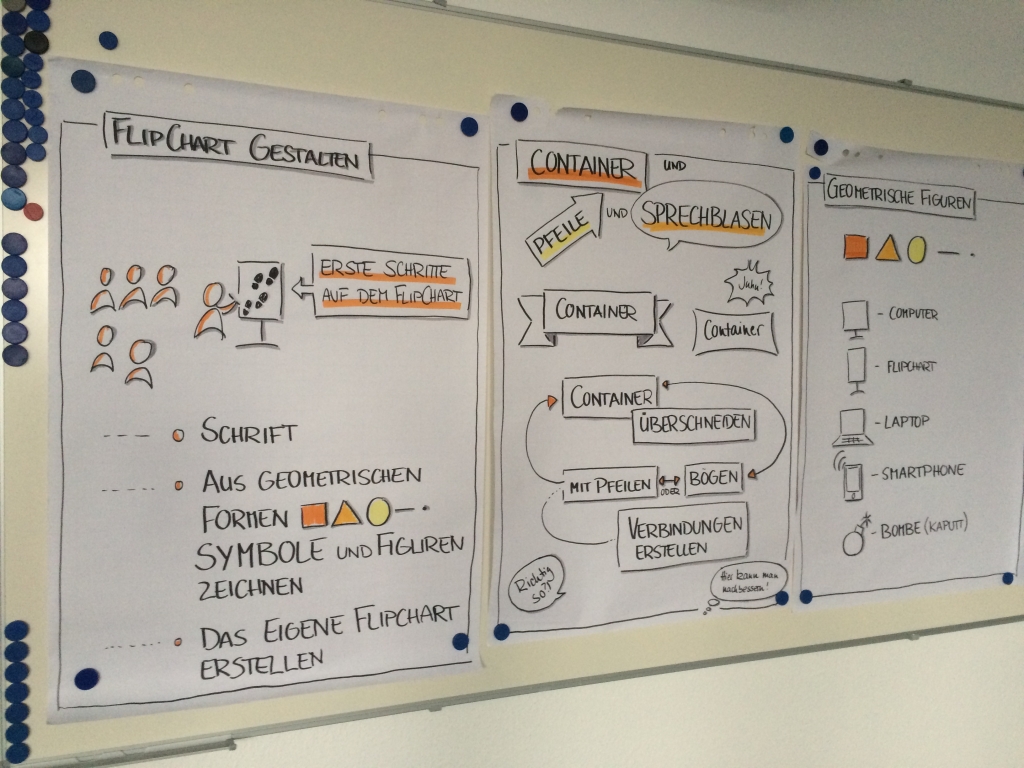 FLIPCHART GESTALTEN
ERSTE SCHRITTE
AUF DEM FLIPCHART
SCHRIFT
AUS GEOMETRISCHEN
FORMEN
SYMBOLE UND FIGUREN
ZEICHNEN
DAS EIGENE FLIPCHART
ERSTELLEN
CONTAINER UND
PFEILE UND SPRECHBLASEN
Juhu!
CONTAINER
Container
CONTAINER
ÜBERSCHNEIDEN
MIT PFEILEN ODER BÖGEN
VERBINDUNGEN
ERSTELLEN
Richtig
so?!
Hier kann man
nachbessern!
GEOMETRISCHE FIGUREN
- COMPUTER
- FLIPCHART
- LAPTOP
- SMARTPHONE
- BOMBE (KAPUTT)